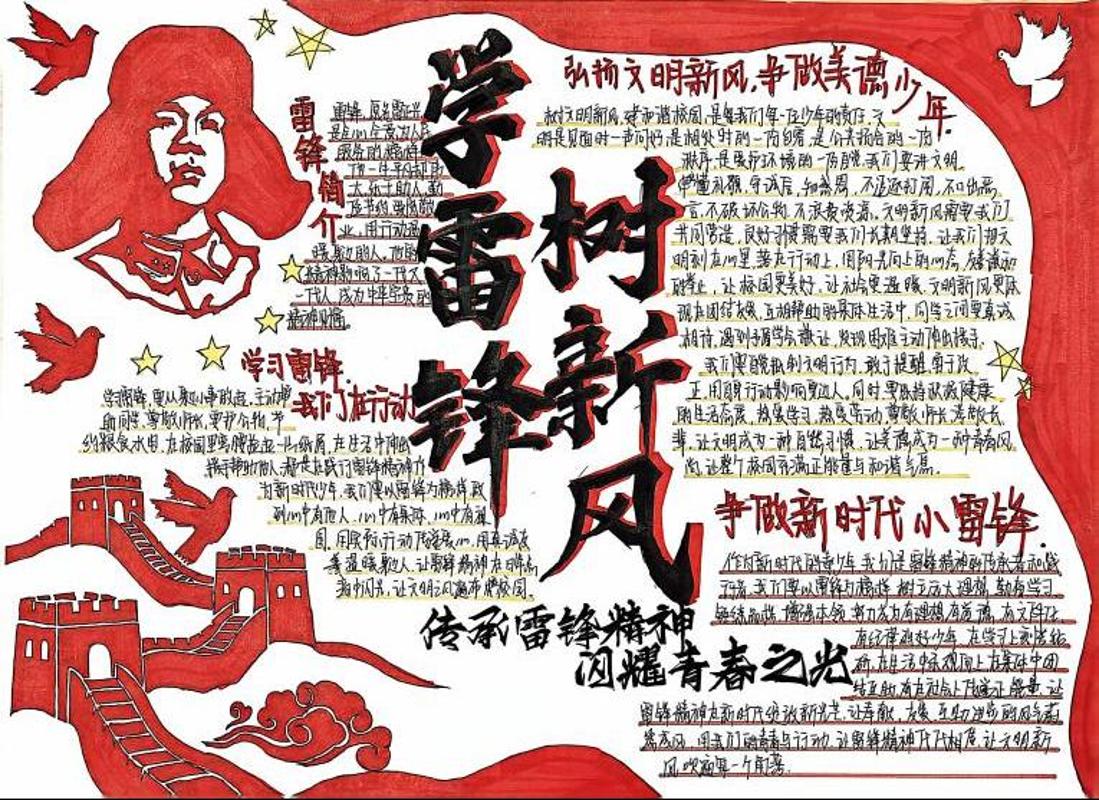 学雷锋
树新风
传承雷锋精神
闪耀青春之光
雷锋简介
雷锋，原名雷正兴，
是全心全意为人民
服务的楷模
一代人，成为中华民族的
精神
学习雷锋，
我们在行动
学雷锋，要从身边小事做起，主动帮
助同学，尊敬师长，爱护公物，节
约粮食水电，在校园里
为新时代少年，我们要以雷锋为榜样，做
到心中有他人，心中有集体，心中有祖
国，用实际行动传递爱心，用真诚友
善温暖身边人，让雷锋精神在
弘扬文明新风，争做美德少年
树文明新风，建和谐校园，是每我们每一位少年的责任。文
明是见面时一声问好，是相处时的一份包容，是公共场合的一份
秩序，是爱护环境的一份自觉。我们要讲文明、
懂礼貌、守诚信、知感恩，不追逐打闹，不口出恶
言，不破坏公物，不浪费资源。文明新风需要我们
共同营造，良好习惯需要我们长期坚持。让我们把文
明刻在心里，落在行动上，用阳光向上的心态、友善谦和
的举止，让校园更美好，让社会更温暖。文明新风更体
现在团结友爱、互相帮助的集体生活中，同学之间要真诚
相待，遇到矛盾学会谦让，发现困难主动伸出援手。
我们要自觉抵制不文明行为，敢于提醒、勇于改
正，用自身行动影响身边人。同时要保持积极健康
的生活态度，热爱学习、热爱劳动、尊敬师长、孝敬长
辈，让文明成为一种自然习惯，让美德成为一种青春风
尚，让整个校园充满正能量与和谐气息。
争做新时代小雷锋，
作为新时代的青少年，我们是雷锋精神的传承者和践
行者。我们要以雷锋为榜样，树立远大理想，勤奋学习，
锤炼品格，增强本领，努力成为有理想、有道德、有文化、
有纪律的好少年。在学习上刻苦钻
研，在生活中乐观向上，在集体中团
结互助，在社会上传递正能量。让
雷锋精神在新时代绽放新光芒，让奉献、友爱、互助、进步的风气蔚
然成风，用我们的青春与行动，让雷锋精神代代相传，让文明新
风吹遍每一个角落。